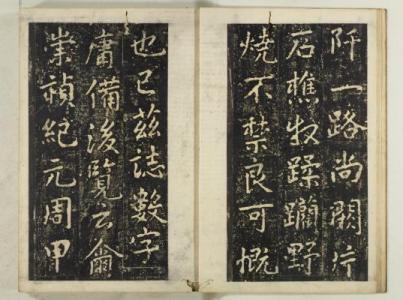 阡一路尚闕片
石樵牧蹂躪野
燒不禁良可慨
也已茲誌數字
庸備後覽云爾
崇禎紀元周甲